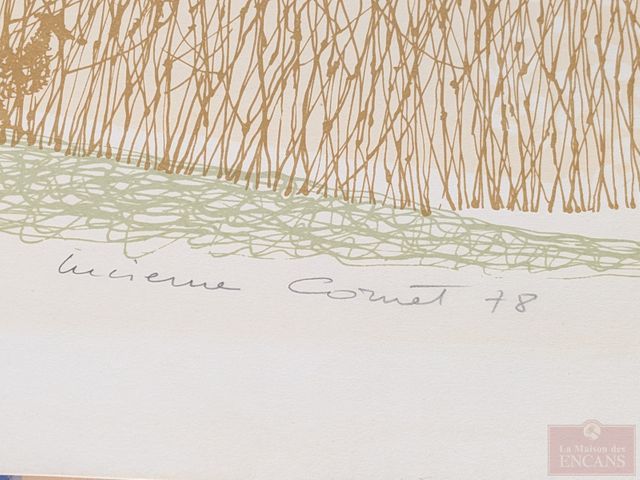 Lucienne Cornet 78
La Maison des
ENCANS